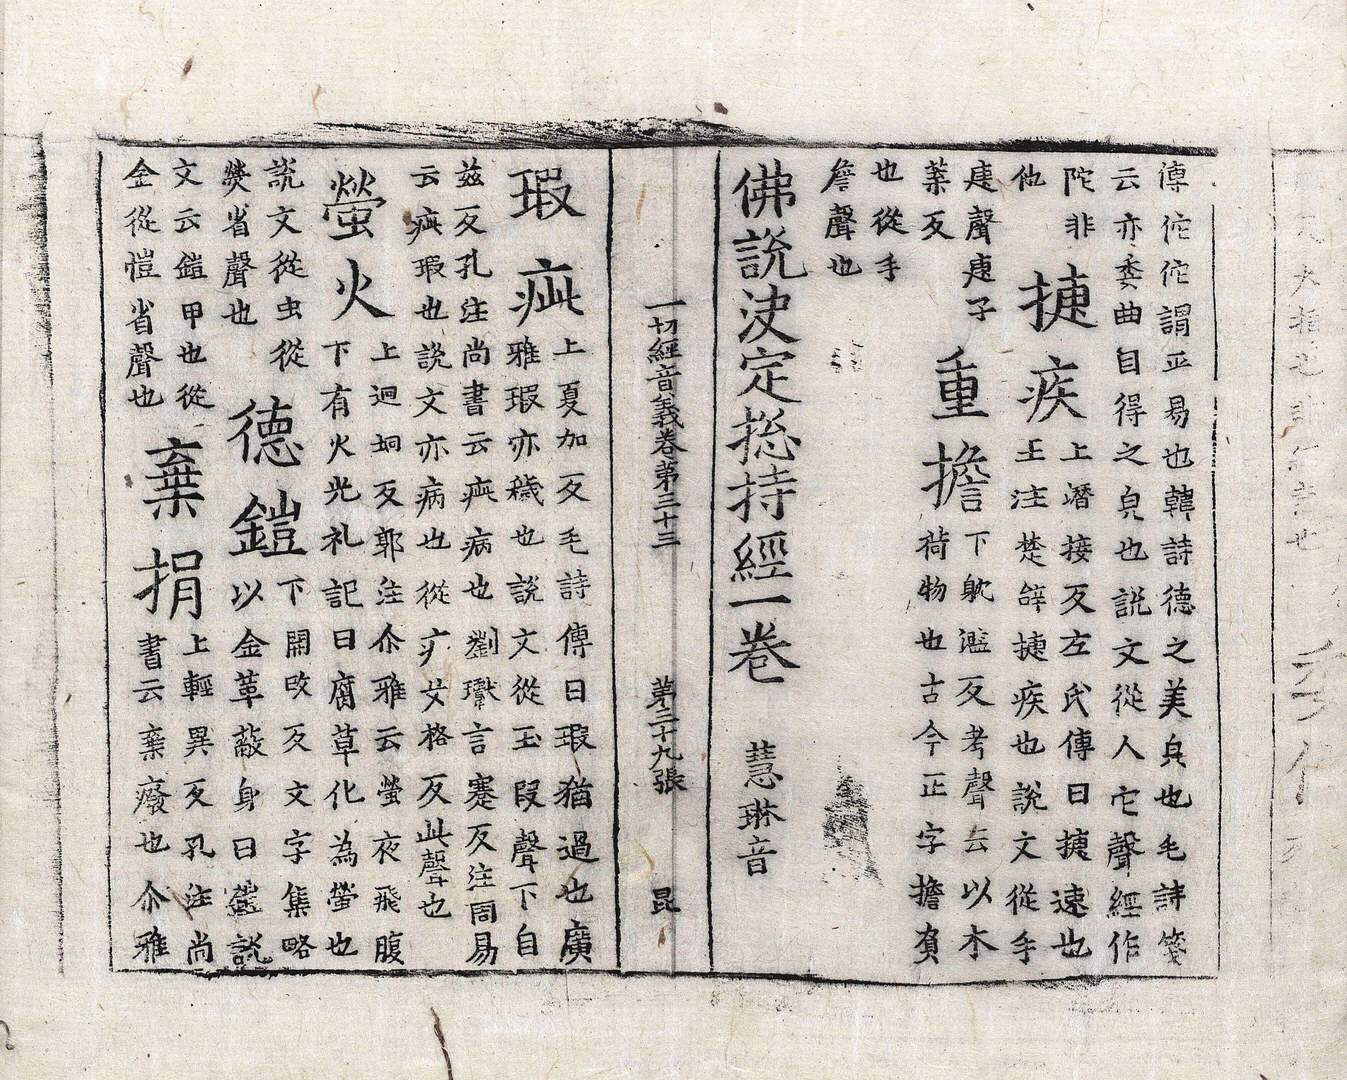 傳佗佗謂平易也韓詩德之美皃也毛詩箋
云亦委曲自得之皃也說文從人它聲經作
陀非
他
捷疾
上潛接反左氏傳曰捷速也
王注楚辭捷疾也說文從手
疌聲疌子
葉反
重擔
下躭濫反考聲云以木
荷物也古今正字擔負
也從手
詹聲也
佛說決定揔持經一卷 慧琳音
一切經音義卷第三十三 第三十九張 昆
瑕疵
上夏加反毛詩傳曰瑕猶過也廣
雅瑕亦穢也說文從玉叚聲下自
茲反孔注尚書云疵病也劉瓛言蹇反注周易
云疵瑕也說文亦病也從疒女格反此聲也
螢火
上迥坰反郭注尒雅云螢夜飛腹
下有火光礼記曰腐草化為螢也
說文從虫從
熒省聲也
德鎧
下開改反文字集略
以金革蔽身曰鎧說
文云鎧甲也從
金從愷省聲也
棄捐
上輕異反孔注尚
書云棄廢也尒雅